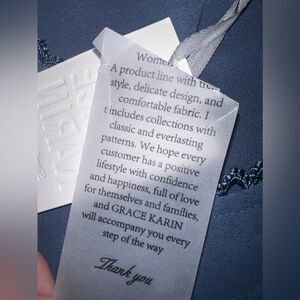 Women
A product line with
style, delicate design, and
comfortable fabric. I
t includes collections with
classic and everlasting
patterns. We hope every
customer has a positive
lifestyle with confidence
and happiness, full of love
for themselves and families,
and GRACE KARIN
will accompany you every
step of the way
Thank you